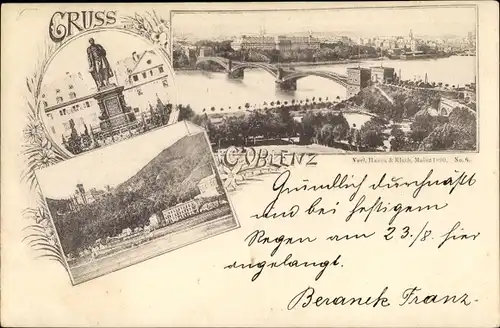 GRUSS
Verl. Hanns & Klein, Mainz 1896. No. 8.
COBLENZ
Gründlich durchnäßt
und bei heftigem
Regen am 23./8. hier
angelangt.
Beranek Franz-